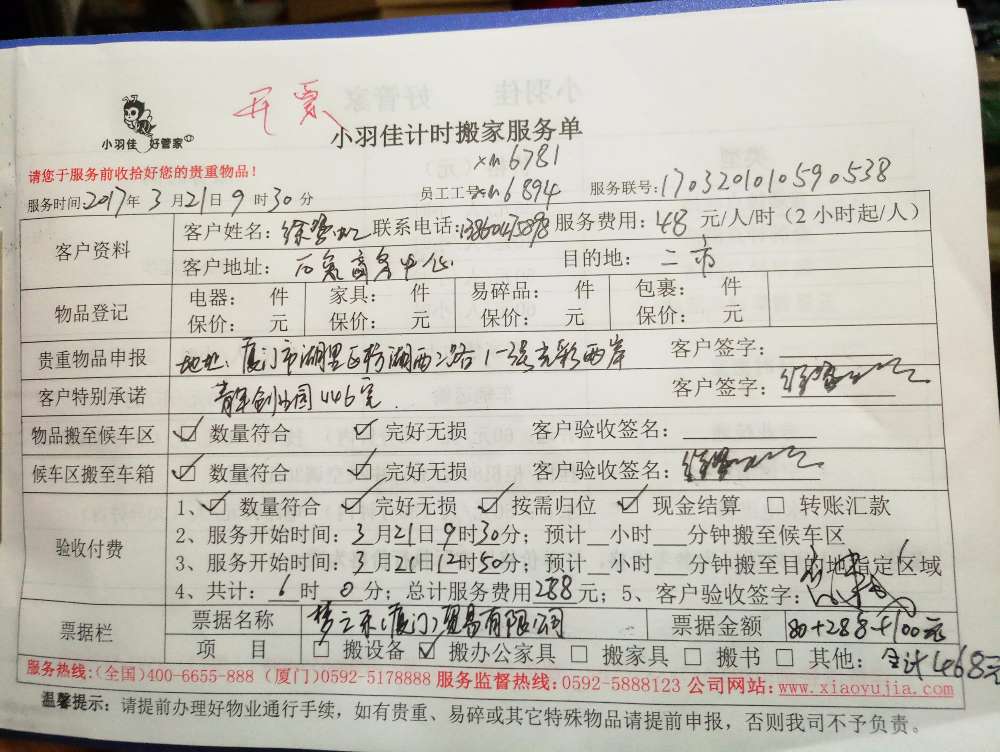 开票
小羽佳 好管家
小羽佳计时搬家服务单
请您于服务前收拾好您的贵重物品!
xm6781
服务时间:2017年3月21日9时30分 员工工号:xm6894 服务联号:1703201010590538
客户资料 客户姓名: 联系电话: 服务费用:48元/人/时(2小时起/人)
客户地址: 商务中心 目的地:二市
物品登记 电器: 件 家具: 件 易碎品: 件 包裹: 件
保价: 元 保价: 元 保价: 元 保价: 元
贵重物品申报 地址:厦门市湖里区枋湖西二路 两岸 客户签字:
客户特别承诺 青年创业园446室. 客户签字:
物品搬至候车区 ☑ 数量符合 ☑ 完好无损 客户验收签名:
候车区搬至车箱 ☑ 数量符合 ☑ 完好无损 客户验收签名:
验收付费 1、☑ 数量符合 ☑ 完好无损 ☑ 按需归位 ☑ 现金结算 □ 转账汇款
2、服务开始时间:3月21日9时30分;预计__小时___分钟搬至候车区
3、服务开始时间:3月21日12时50分;预计__小时___分钟搬至目的地指定区域
4、共计:6时0分;总计服务费用288元;5、客户验收签字:
票据栏 票据名称 (厦门)贸易有限公司 票据金额 80+288+100元
项 目 □ 搬设备 ☑ 搬办公家具 □ 搬家具 □ 搬书 □ 其他:合计468元
服务热线:(全国)400-6655-888 (厦门)0592-5178888 服务监督热线:0592-5888123 公司网站:www.xiaoyujia.com
温馨提示:请提前办理好物业通行手续,如有贵重、易碎或其它特殊物品请提前申报,否则我司不予负责。